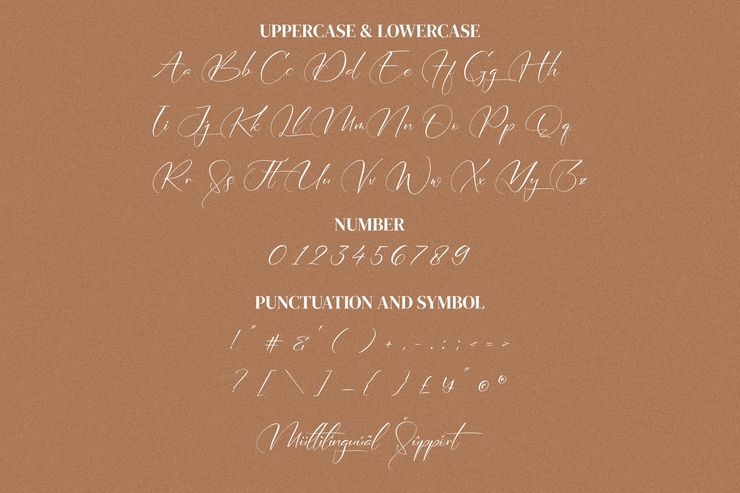 UPPERCASE & LOWERCASE
Aa Bb Cc Dd Ee Ff Gg Hh
Ii Jj Kk Ll Mm Nn Oo Pp Qq
Rr Ss Tt Uu Vv Ww Xx Yy Zz
NUMBER
0123456789
PUNCTUATION AND SYMBOL
! " # & ' ( ) + , - . : ; < = >
? [ \ ] _ { } £ ¥ " © ®